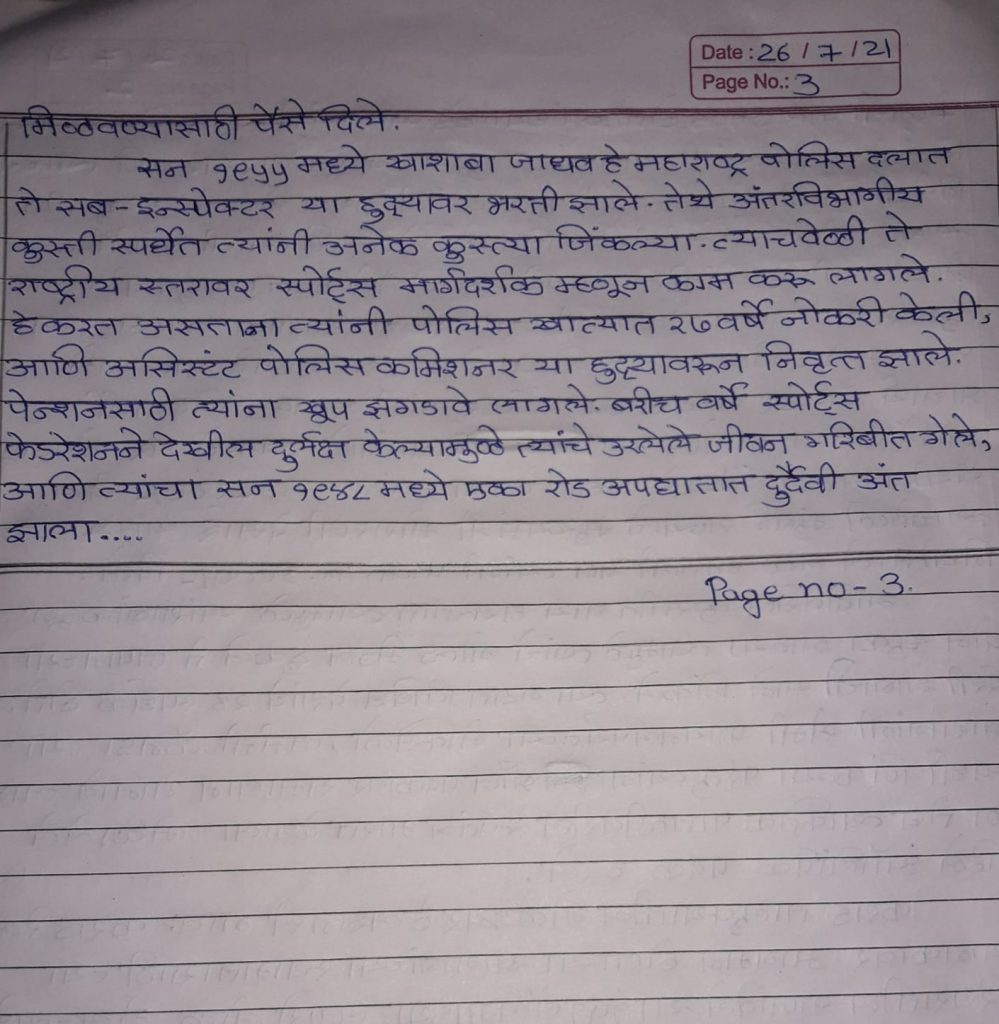 Date : 26 / 7 / 21
Page No.: 3
मिळवण्यासाठी पैसे दिले.
सन १९५५ मध्ये खाशाबा जाधव हे महाराष्ट्र पोलिस दलात
ते सब-इन्स्पेक्टर या हुद्द्यावर भरती झाले. तेथे अंतरविभागीय
कुस्ती स्पर्धेत त्यांनी अनेक कुस्त्या जिंकल्या. त्याचवेळी ते
राष्ट्रीय स्तरावर स्पोर्ट्स मार्गदर्शक म्हणून काम करू लागले.
हे करत असताना त्यांनी पोलिस खात्यात २७ वर्षे नोकरी केली,
आणि असिस्टंट पोलिस कमिशनर या हुद्द्यावरून निवृत्त झाले.
पेन्शनसाठी त्यांना खूप झगडावे लागले. बरीच वर्षे स्पोर्ट्स
फेडरेशनने देखील दुर्लक्ष केल्यामुळे त्यांचे उरलेले जीवन गरिबीत गेले,
आणि त्यांचा सन १९४८ मध्ये एका रोड अपघातात दुर्दैवी अंत
झाला....
Page no - 3.